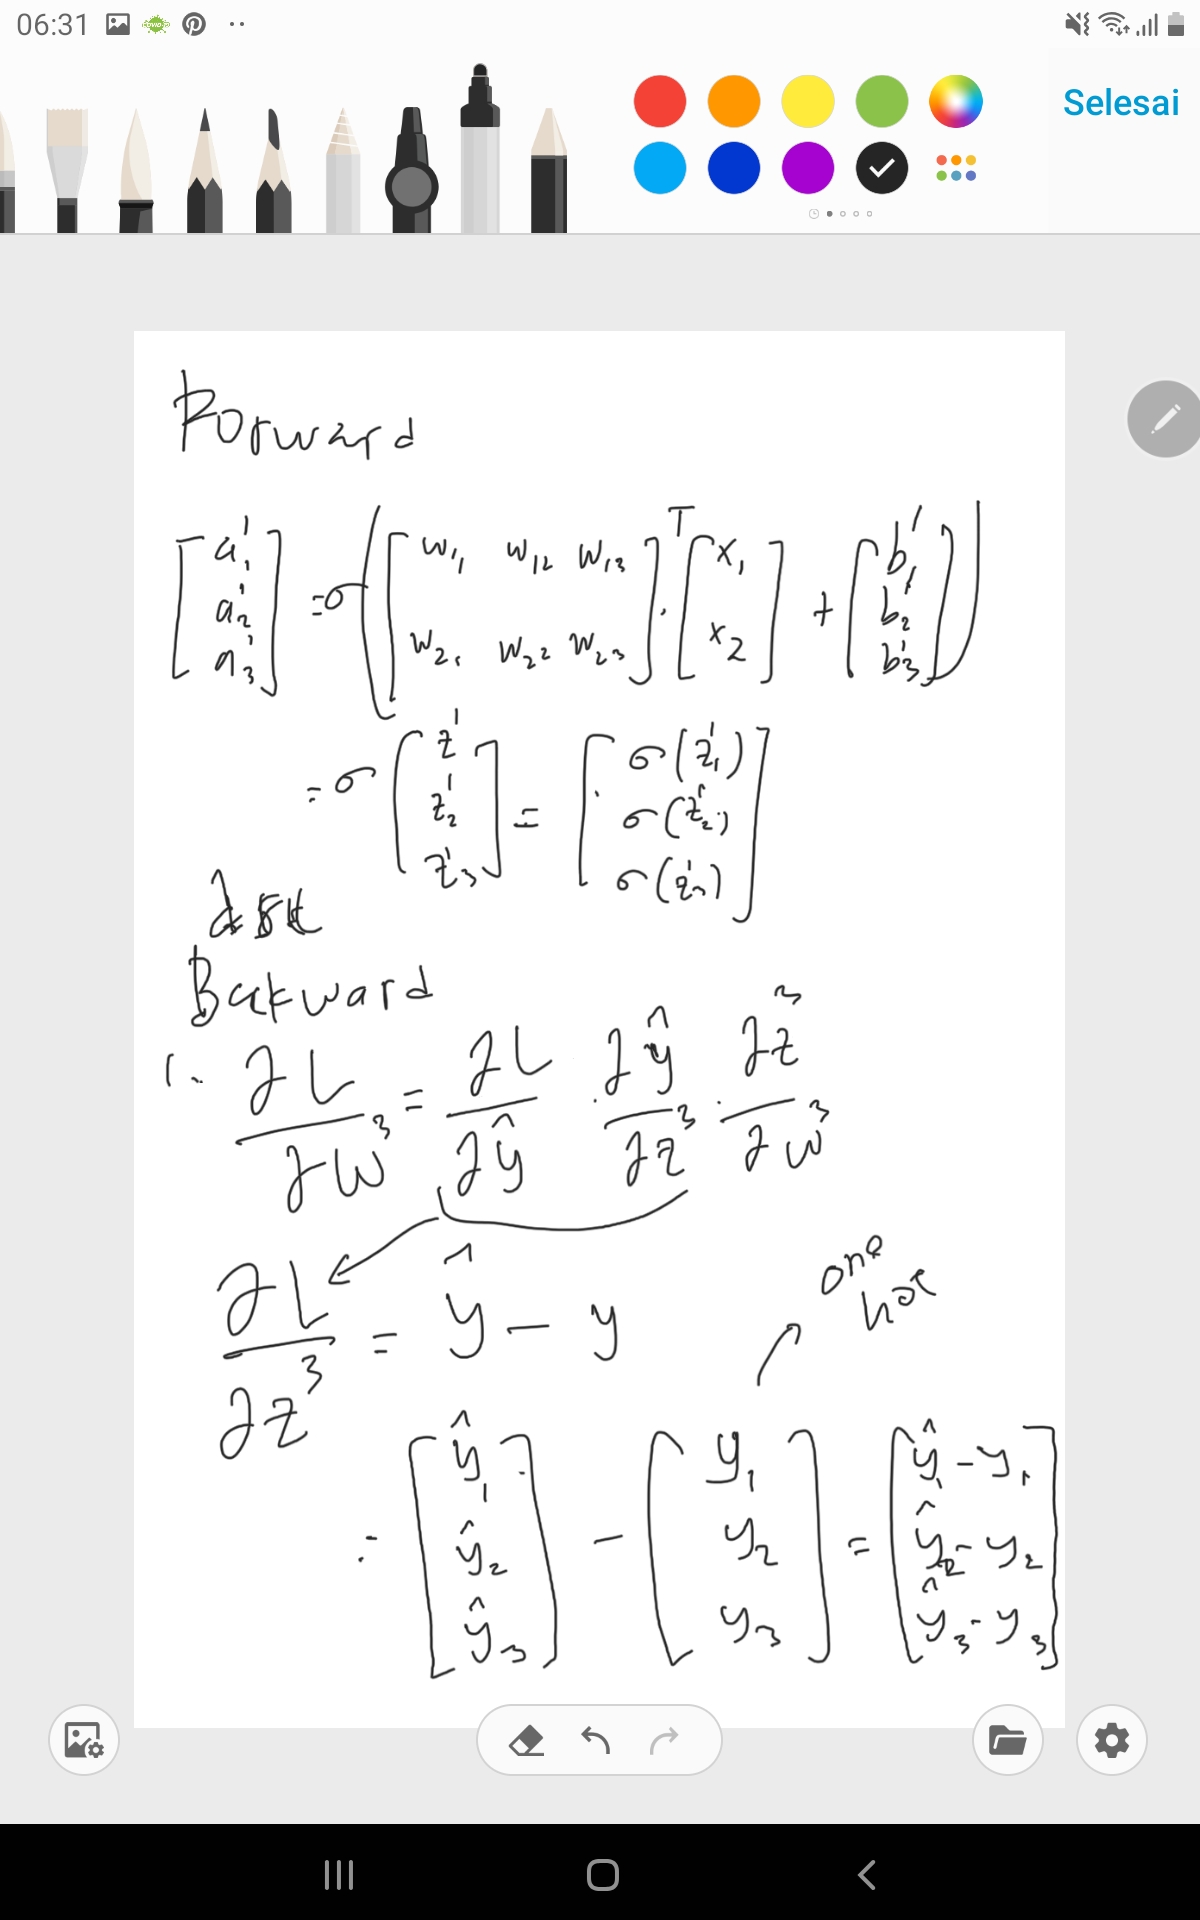 06:31
Selesai
Forward
[a₁¹ a₂¹ a₃¹] = σ([w₁₁ w₁₂ w₁₃ w₂₁ w₂₂ w₂₃]ᵀ · [x₁ x₂] + [b₁¹ b₂¹ b₃¹])
= σ[z¹ z₂¹ z₃¹] = [σ(z₁¹) σ(z₂¹) σ(z₃¹)]
Backward
1. ∂L/∂w³ = ∂L/∂ŷ · ∂ŷ/∂z³ · ∂z³/∂w³
∂L/∂z³ = ŷ - y
one hot
= [ŷ₁ ŷ₂ ŷ₃] - [y₁ y₂ y₃] = [ŷ₁-y₁ ŷ₂-y₂ ŷ₃-y₃]